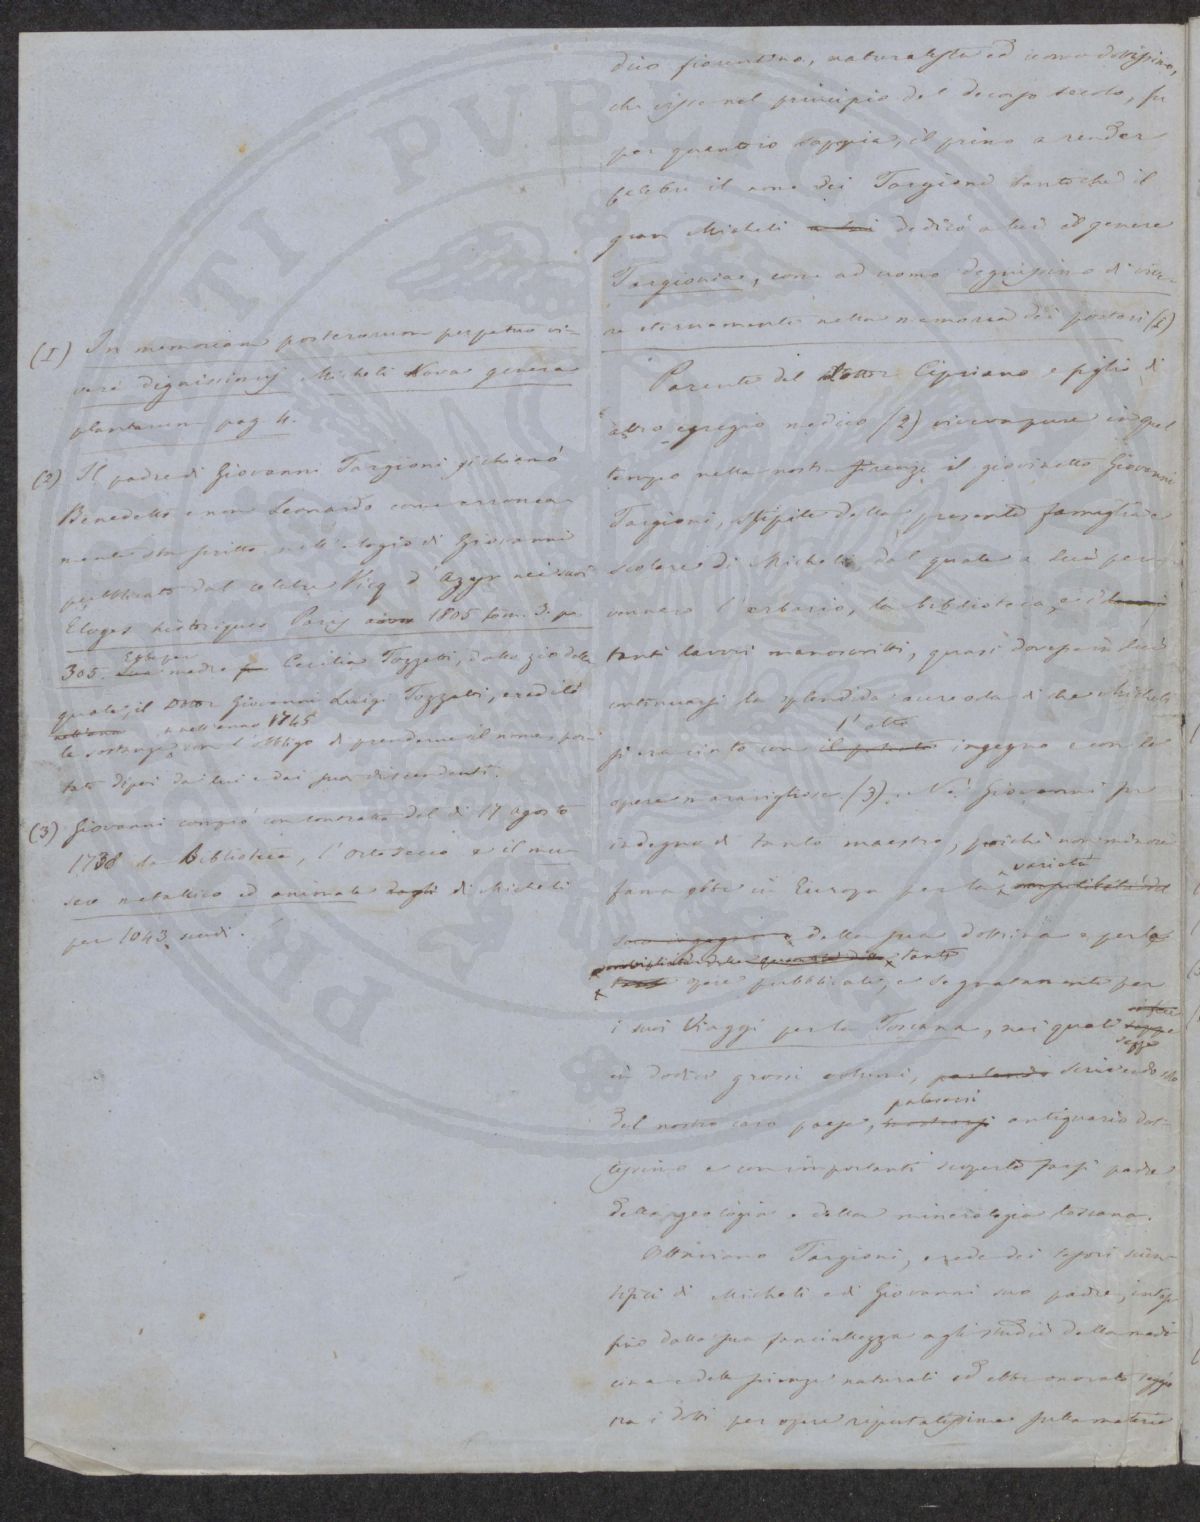 dico fiorentino, naturalista ed uomo dottissimo,
che visse nel principio del decorso secolo, fu
per quanto io sappia, il primo a render
celebre il nome dei Targioni tanto che il
gran Micheli a lui dedicò a lui il genere
Targionia, come ad uomo degnissimo di vive-
re eternamente nella memoria dei posteri (1)
Parente del Dottor Cipriano e figlio di
altro egregio medico (2) viveva pure in quel
tempo nella nostra Firenze il giovinetto Giovanni
Targioni, stipite della presente famiglia e
scolare di Micheli, dal quale a lui per-
vennero l'erbario, la biblioteca, e i
tanti lavori manoscritti, quasi dovesse in lui
continuarsi la splendida aureola di che Micheli
l'alto
si era cinto con il ingegno e con le
opere maravigliose (3). Nè Giovanni fu
indegno di tanto maestro, poichè non minore
varietà
fama ebbe in Europa per la
suo ingegno e della sua dottrina e per le
tante
tante opere pubblicate, e segnatamente per
i suoi Viaggi per la Toscana, nei quali seppe
seppe
in dodici grossi volumi, parlando scrivendo
palesarsi
del nostro caro paese, mostrarsi antiquario dot-
tissimo e con importanti scoperte farsi padre
della geologia e della mineralogia toscana.
Ottaviano Targioni, erede dei tesori scien-
tifici di Micheli e di Giovanni suo padre, intese
fino dalla sua fanciullezza agli studi della medi-
cina e delle scienze naturali ed ebbe onorato seggio
tra i dotti per opere reputatissime sulla materia
(1) In memoriam posterorum perpetuo vi-
vere dignissimus Micheli Nova genera
plantarum pag 4.
(2) Il padre di Giovanni Targioni si chiamò
Benedetto e non Leonardo come erronea-
mente sta scritto nell'elogio di Giovanni
pubblicato dal celebre Vicq d'Azyr nei suoi
Eloges historiques Paris 1805 tom. 3. pa
Ebbe per
305. Sua madre fu Cecilia Tozzetti, dallo zio della
quale, il Dottor Giovanni Luigi Tozzetti, ereditò
nell'anno nell'anno 1745
le sostanze, con l'obbligo di prenderne il nome, por-
tato dipoi da lui e dai suoi discendenti.
(3) Giovanni comprò con contratto del dì 17 Agosto
1738 la Biblioteca, l'Orto secco e il mu-
seo metallico ed animale degli di Micheli
per 1043 scudi.